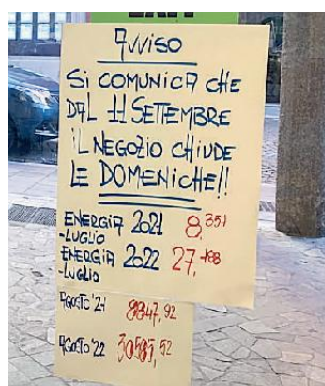 AVVISO
SI COMUNICA CHE
DAL 11 SETTEMBRE
IL NEGOZIO CHIUDE
LE DOMENICHE!!
ENERGIA 2021 8,351
-LUGLIO
ENERGIA 2022 27,188
-LUGLIO
AGOSTO '21 8847,92
AGOSTO '22 30585,52